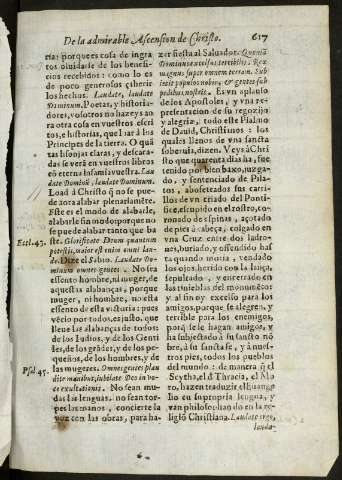 De la admirable Ascension de Christo. 617
ria: porque es cosa de ingra
tos oluidarse de los benefi-
cios recebidos: como lo es
de poco generosos çaherir
los hechos. Laudate, laudate
Dominum. Poetas, y historia-
dores, vosotros no hazeys ao
tra otra cosa en vuestros escri
tos, e historias, que loar à los
Principes de la tierra. O quã
tas lisonjas claras, y descara-
das se verà en vuestros libros
eõ eterna infamia vuestra. Lau
date Dominũ, laudate Dominum.
Load à Christo q̃ no se pue-
de aora alabar plenariamẽte.
Este es el modo de alabarle,
alabarle sin modo: porque no
se puede alabar tanto que ba
Eccl. 43. ste. Glorificate Deum quantum
potestis, maior est enim omni lau-
de. Dize el Sabio. Laudate Do-
minum omnes gentes. No sea
essento hombre, ni muger, de
aquestas alabanças; porque
muger, ni hombre, no esta
essento de esta historia: pues
vẽcio por todos, es justo, que
lleue las alabanças de todos
de los Iudios, y de los Genti
les, de los grãdes, y de los pe-
queños, de los hombres, y de
las mugeres. Omnes gentes plau
Psal 45. dite manibus, iubilate Deo in vo-
ce exultationis. No sean mu-
das las lenguas, no sean tor-
pes las manos, concierte la
voz con las obras, para ha-
zer fiesta al Saluador. Quoniã
Dominus excelsus, terribilis. Rex
magnus super omnem terram. Sub
iecit populos nobis, & gentes sub
pedibus nostris. Es vn aplauso
de los Apostoles, y vna re-
presentacion de su regozija
y alegria, todo este Psalmo
de Dauid, Christianos: los
quales llenos de vna sancta
soberuia, dizen. Veys à Chri
sto que quarenta dias ha, fue
tenido por bien baxo, juzga-
do, y sentenciado de Pila-
tos, abofeteados sus carri-
llos de vn criado del Ponti-
fice, escupido en el rostro, co-
ronado de espinas, açotado
de pies à cabeça, colgado en
vna Cruz entre dos ladro-
nes, burlado, y offendido has
ta quando moria, vendado
los ojos, herido con la lãça,
sepultado, y encerrado en
las tinieblas del monumẽto
y al fin oy excelso para los
amigos, porque se alegren, y
terrible para los enemigos,
porq̃ se le hagan amigos, y
ha subjectado à su sancto nõ
bre, à su sancta fe, y à nues-
tros pies, todos los pueblos
del mundo: de manera q̃ el
Scytha, el d̃ Thracia, el Mo
ro, hazen traduzir el Euange
lio en su propria lengua, y
van philosophando en la re-
ligiõ Christiana. Laudate ergo,
lauda-